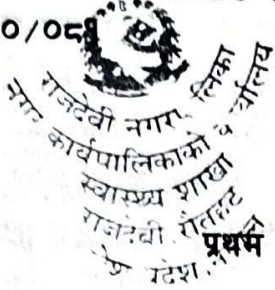 ०/०८१
राजदेवी नगर लिका
नगर कार्यपालिकाको र्यालय
स्वास्थ्य शाखा
राजदेवी, रौतहट
प्रदेश,
प्रथम